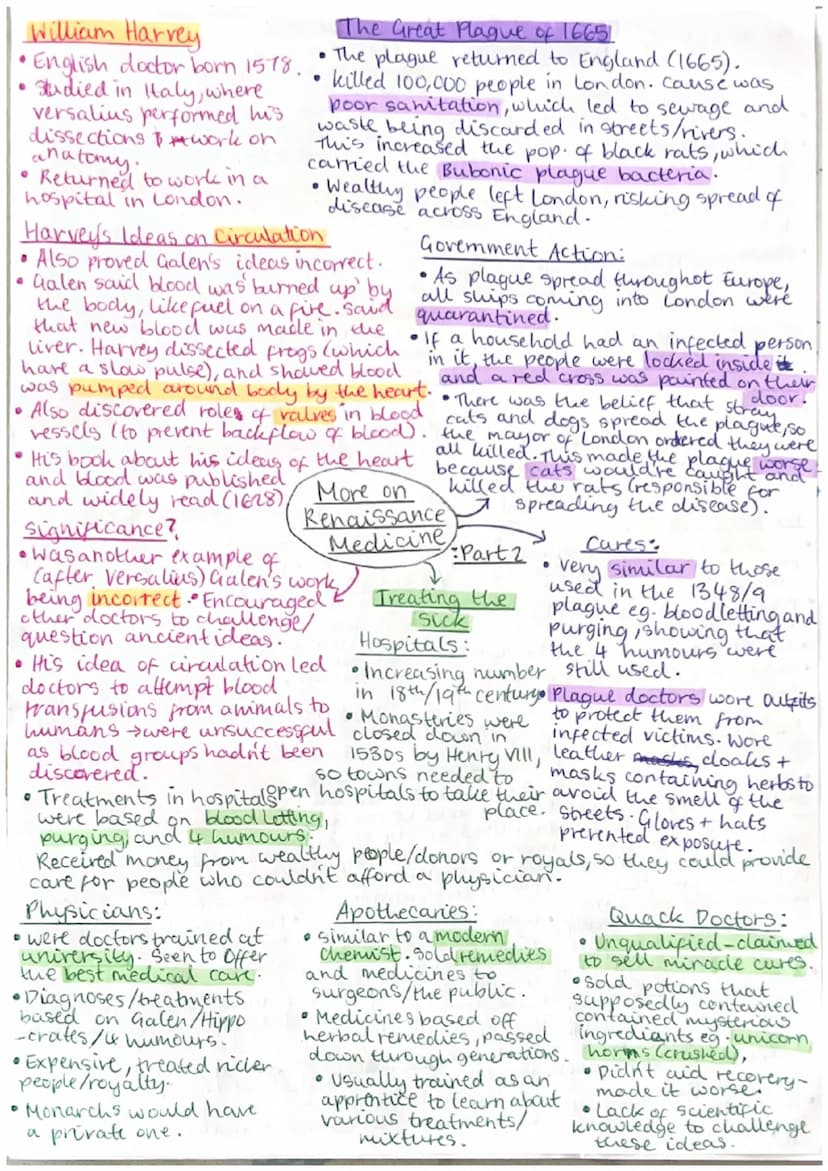 William Harvey
• English doctor born 1578.
• Studied in Italy, where
versalius performed his
dissections & work on
anatomy.
• Returned to work in a
hospital in London.
Harvey's Ideas on Circulation
• Also proved Galen's ideas incorrect.
• Galen said blood was 'burned up' by
the body, like fuel on a fire. Said
that new blood was made in the
liver. Harvey dissected frogs (which
have a slow pulse), and showed blood
was pumped around body by the heart.
• Also discovered roles of valves in blood
vessels (to prevent backflow of blood).
• His book about his ideas of the heart
and blood was published
and widely read (1628)
Significance?
• Was another example of
(after Versalius) Galen's work
being incorrect. • Encouraged
other doctors to challenge/
question ancient ideas.
• His idea of circulation led
doctors to attempt blood
transfusions from animals to
humans → were unsuccessful
as blood groups hadn't been
discovered.
The Great Plague of 1665
• The plague returned to England (1665).
• killed 100,000 people in London. Cause was
poor sanitation, which led to sewage and
waste being discarded in streets/rivers.
This increased the pop. of black rats, which
carried the Bubonic plague bacteria.
• Wealthy people left London, risking spread of
disease across England.
Government Action:
• As plague spread throughot Europe,
all ships coming into London were
quarantined.
• If a household had an infected person
in it, the people were locked inside
and a red cross was painted on their
door.
• There was the belief that stray
cats and dogs spread the plague, so
the mayor of London ordered they were
all killed. This made the plague worse
because cats would've caught and
killed the rats (responsible for
spreading the disease).
More on
Renaissance
Medicine
:Part 2
Cures:
• Very similar to those
used in the 1348/9
plague eg. bloodletting and
purging, showing that
the 4 humours were
still used.
• Plague doctors wore outfits
to protect them from
infected victims. Wore
leather masks, cloaks +
masks containing herbs to
avoid the smell of the
streets. Gloves + hats
prevented exposure.
Treating the
Sick
Hospitals:
• Increasing number
in 18th/19th century
• Monasteries were
closed down in
1530s by Henry VIII,
so towns needed to
open hospitals to take their
place.
• Treatments in hospitals
were based on bloodletting,
purging, and 4 humours.
Received money from wealthy people/donors or royals, so they could provide
care for people who couldn't afford a physician.
Physicians:
• were doctors trained at
university. Seen to offer
the best medical care.
• Diagnoses/treatments
based on Galen/Hippo
-crates/4 humours.
• Expensive, treated richer
people/royalty.
• Monarchs would have
a private one.
Apothecaries:
• Similar to a modern
chemist. Sold remedies
and medicines to
surgeons/the public.
• Medicines based off
herbal remedies, passed
down through generations.
• Usually trained as an
apprentice to learn about
various treatments/
mixtures.
Quack Doctors:
• Unqualified-claimed
to sell miracle cures.
• Sold potions that
supposedly contained
contained mysterious
ingredients eg. unicorn
horns (crushed),
• Didn't aid recovery-
made it worse.
• Lack of scientific
knowledge to challenge
these ideas.